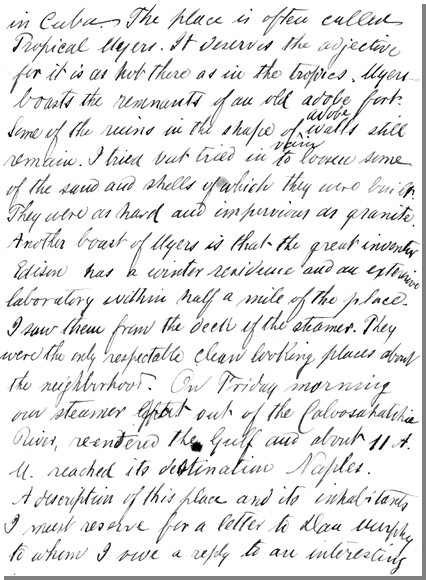 in Cuba. The place is often called
Tropical Myers. It deserves the adjective
for it is as hot there as in the tropics. Myers
boasts the remnants of an old adobe fort.
Some of the ruins in the shape of adobe walls still
remain. I tried but tried in vain to loosen some
of the sand and shells of which they were built.
They were as hard and impervious as granite.
Another boast of Myers is that the great inventor
Edison has a winter residence and an extensive
laboratory within half a mile of the place.
I saw them from the deck of the steamer. They
were the only respectable clean looking places about
the neighborhood. On Friday morning
our steamer out of the Caloosahatchie
River, reentered the Gulf and about 11 A.
M. reached its destination Naples.
A description of this place and its inhabitants
I must reserve for a letter to Dan Murphy
to whom I owe a reply to an interesting